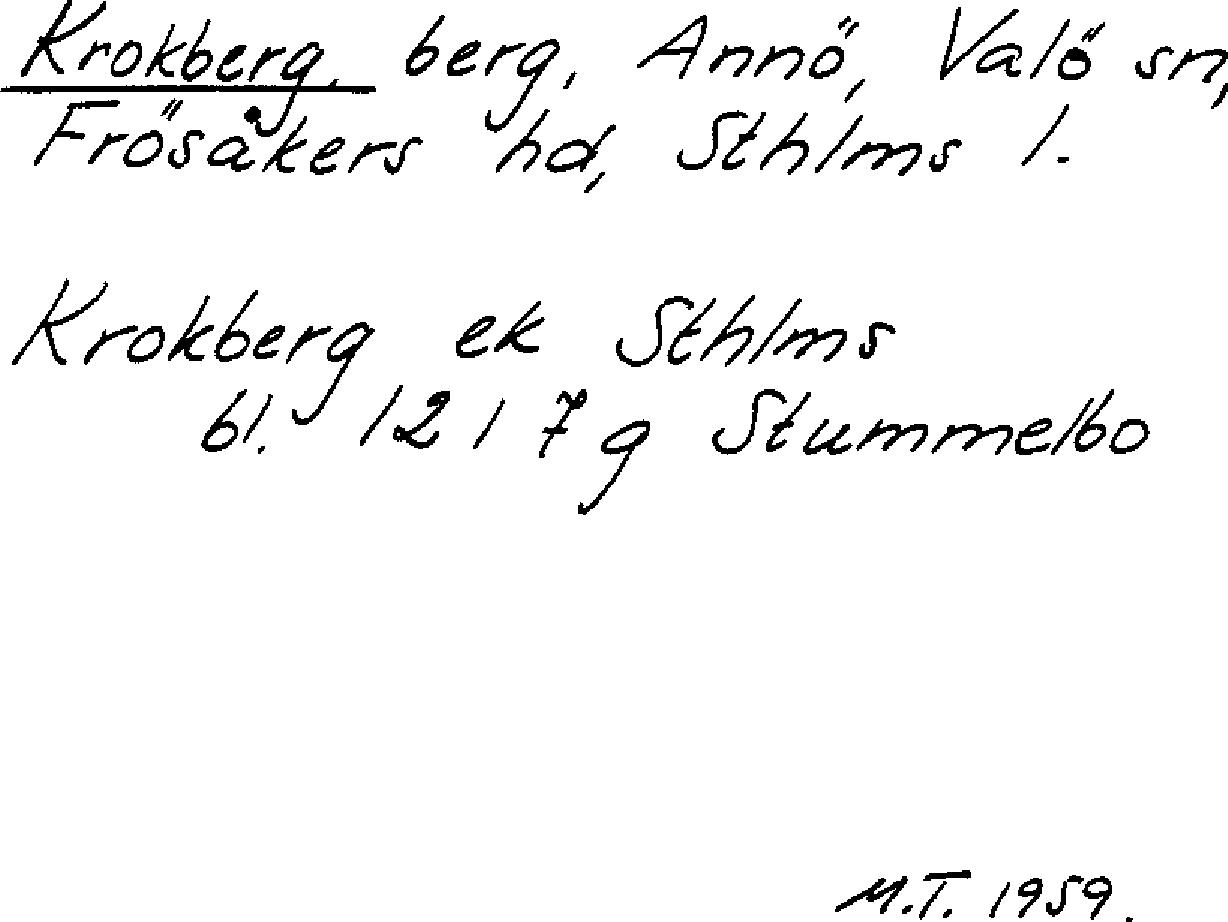 Krokberg, berg, Annö, Valö sn,
Frösåkers hd, Sthlms l.
Krokberg ek Sthlms
bl. 12 I 7 g Stummelbo
M.T. 1959.